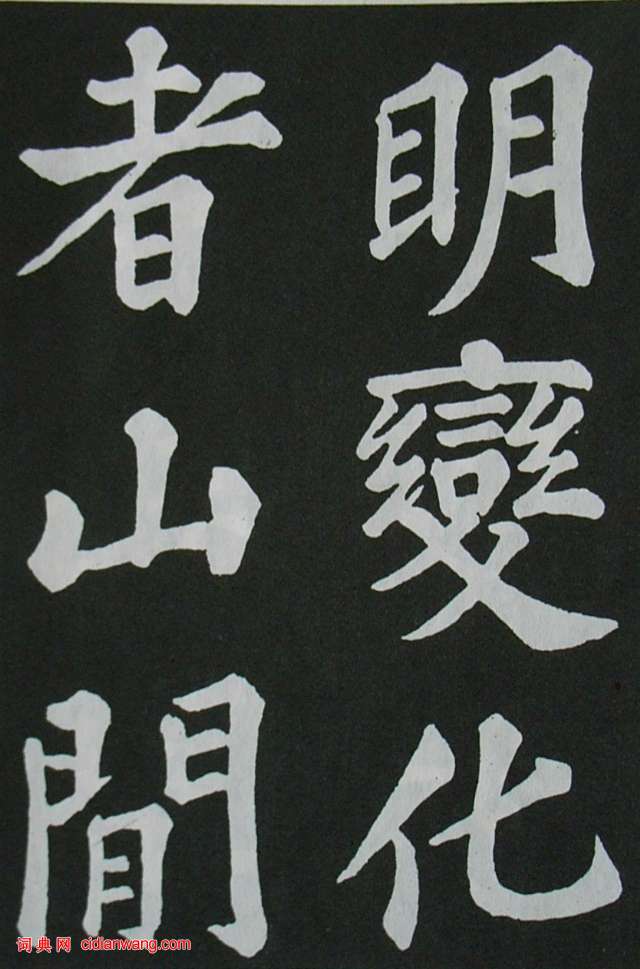 明變化
者山閒
词典网 cidianwang.com